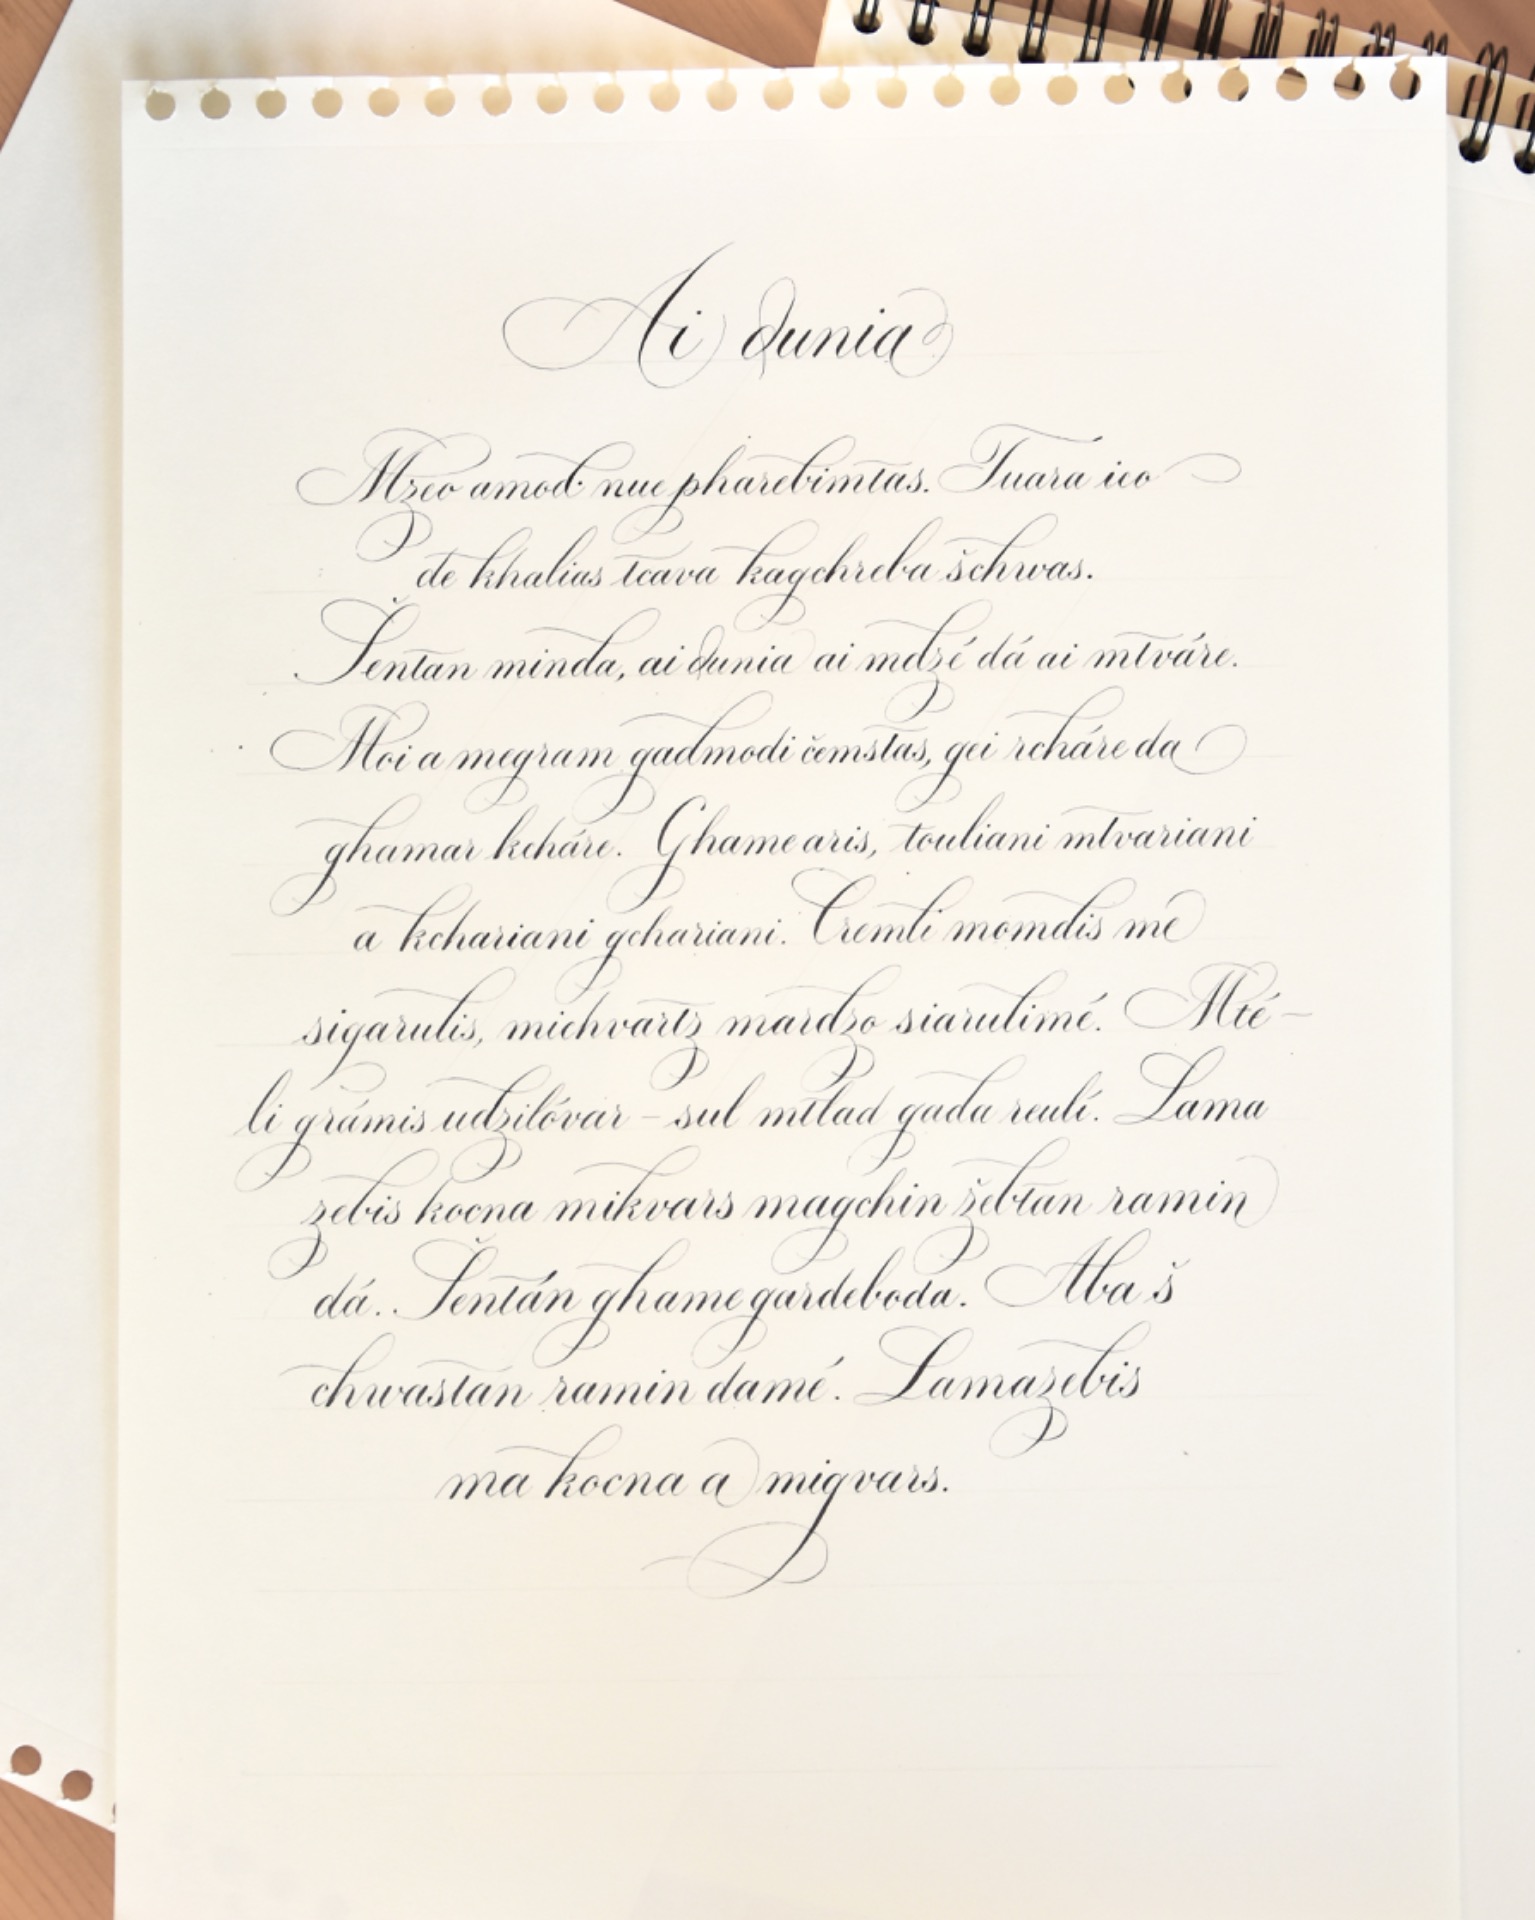 Ai dunia
Mzeo amod nue pharebimtas. Tuara ico
de khalias tcava kagchreba šchwas.
Šentan minda, ai dunia ai mdzé dá ai mtváre.
Moi a megram gadmodi čemstas, gei rcháre da
ghamar kcháre. Ghame aris, touliani mtvariani
a kchariani gchariani. Cremli momdis me
sigarulis, michvartz mardzo siarulimé. Mté-
li grámis udzilóvar – sul mtlad gada reulí. Lama
zebis kocna mikvars magchin žebtan ramin
dá. Šentán ghame gardeboda. Aba š
chwastan ramin damé. Lamazebis
ma kocna a migvars.